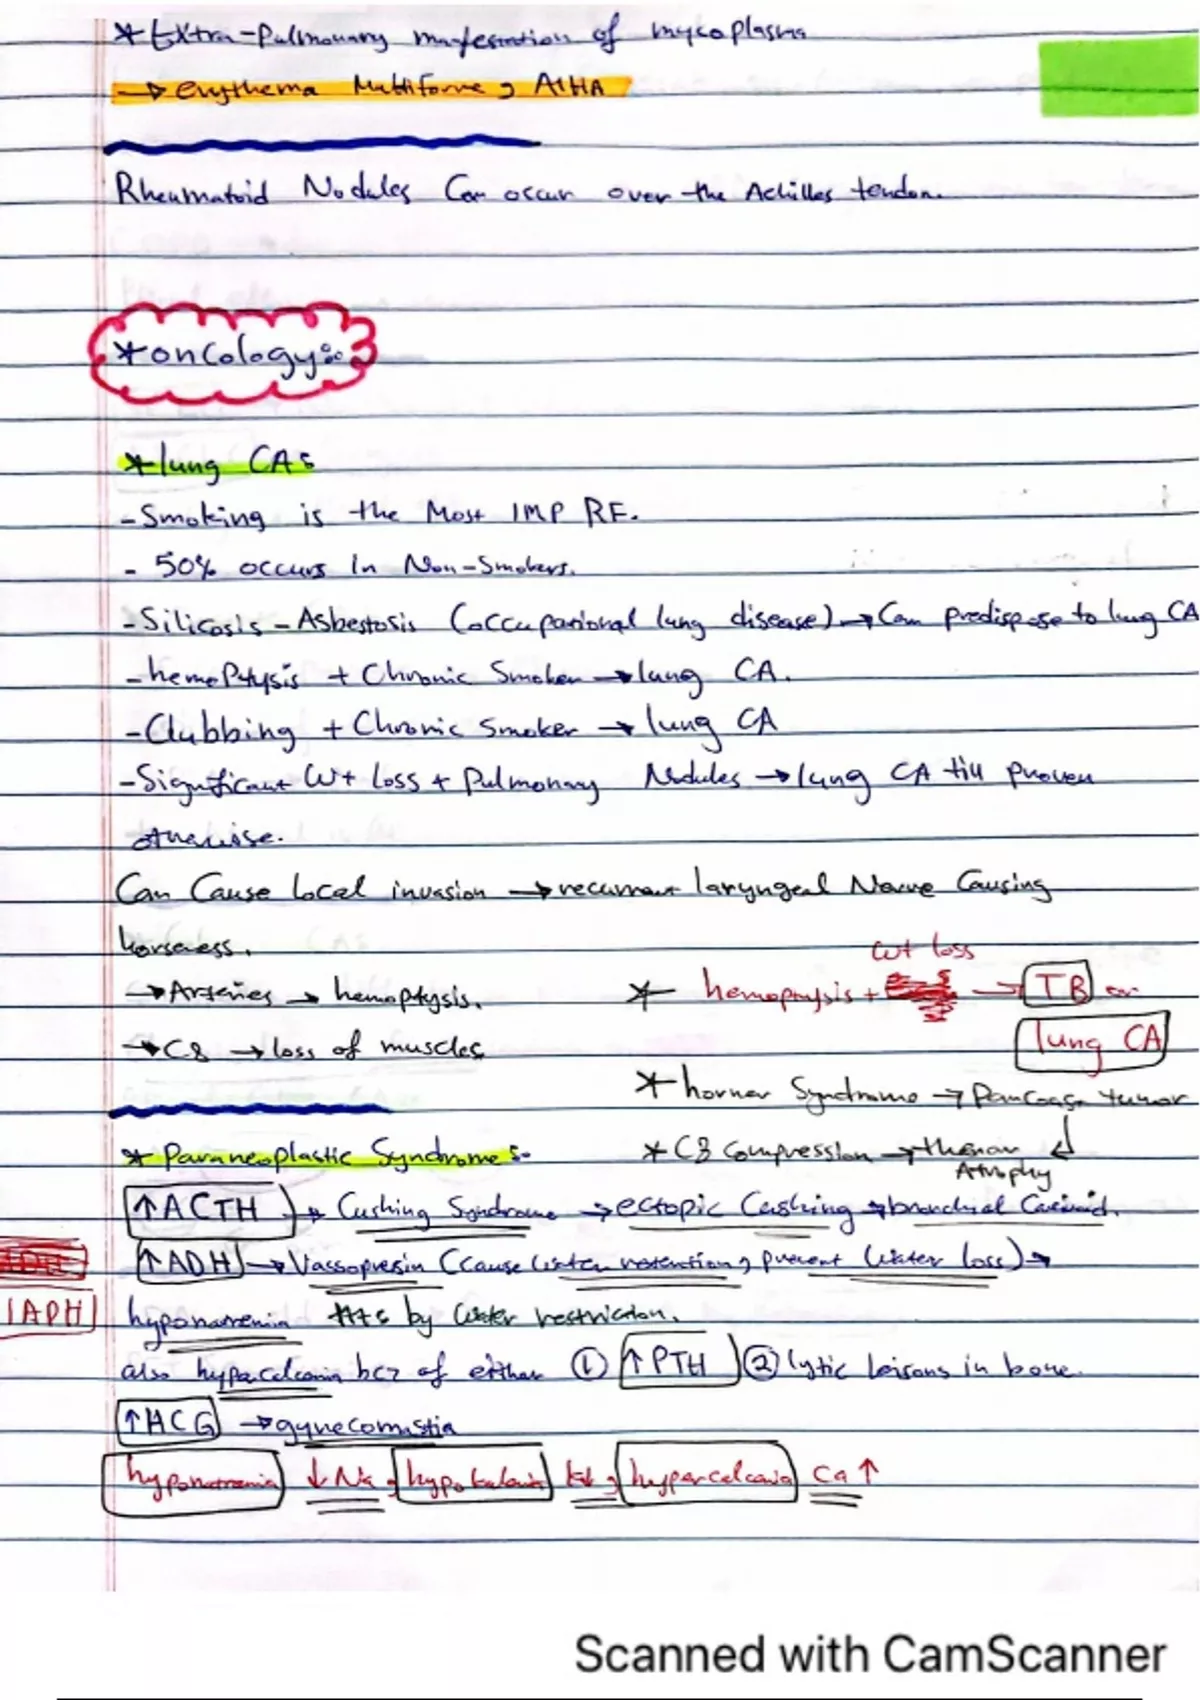 * Extra-Pulmonary manfestation of mycoplasma
→ erythema Multiforme, AIHA
Rheumatoid Nodules Can occur over the Achilles tendon.
* oncology:
* lung CA:
- Smoking is the Most IMP RF.
- 50% occurs in Non-Smokers.
- Silicosis - Asbestosis (occupational lung disease) → Can predispose to lung CA
- hemoptysis + Chronic Smoker → lung CA.
- Clubbing + Chronic Smoker → lung CA
- Significant Wt loss + Pulmonary Nodules → lung CA till proven
otherwise.
Can Cause local invasion → recurrent laryngeal Nerve Causing
horseness.
→ Arteries → hemoptysis.
→ C8 → loss of muscles
* hemoptysis + wt loss → TB or
lung CA
* horner Syndrome → Pancoast tumor
* C8 Compression → thenar
Atrophy
* Paraneoplastic Syndrome:-
↑ACTH → Cushing Syndrome → ectopic Cushing → bronchial Carcinoid.
↑ADH → Vassopresin (cause water retention, prevent water loss) →
hyponatremia ttt: by water restriction.
also hypercalcemia bcz of either ① ↑PTH ② lytic leisons in bone.
↑HCG → gynecomastia
hyponatremia ↓Na, hypokalemia K↓, hypercalcemia Ca↑
Scanned with CamScanner